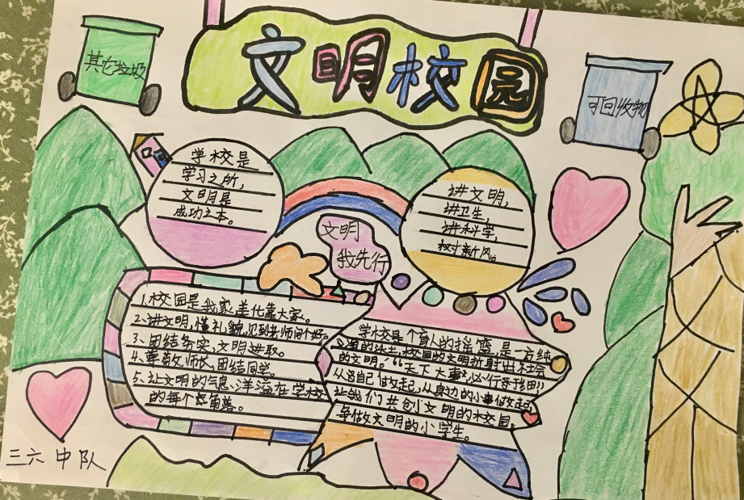 其它垃圾
文明校园
可回收物
学校是
学习之所,
文明是
成功之本。
讲文明,
讲卫生,
讲科学,
树新风。
文明
我先行
1.校园是我家,美化靠大家。
2.讲文明,懂礼貌,见到老师问个好。
3.团结务实,文明进取。
4.尊敬师长,团结同学。
5.让文明的气息洋溢在学校
的每个角落。
学校是个育人的摇篮,是一方纯
的文明。"天下大事,必行于细"
从自己做起,从身边的小事做起
让我们共创文明的校园。
争做文明的小学生。
三六中队